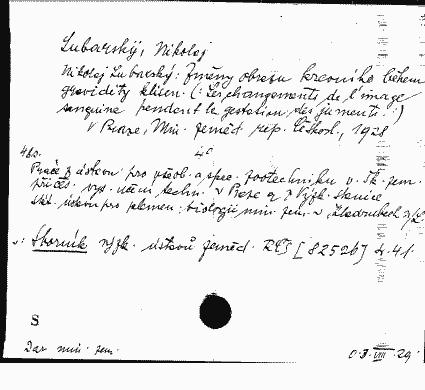 Lubarskij, Nikolaj
Nikolaj Lubarskij: Změny obrazu krevního během
gravidity klisen. (Les changements de l'image
sanguine pendant la gestation des juments.)
V Praze, Min. zeměd. rep. Českosl., 1928
4°
48s.
Práce z ústavu pro všeob. a spec. zootechniku v
příčes. vys. učení techn. v Praze a z Výzk. stanice
stát. ústavu pro plemen. biologii min. zem. v
v: Sborník výzk. ústavů zeměd. RČS [82526] 41.
S
Dar min. zem.
VIII 29.